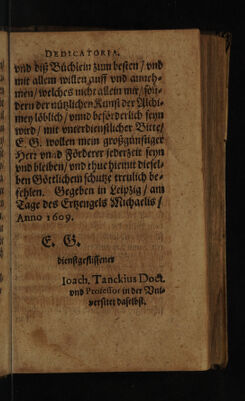 DEDICATORIA.
vnd diß Büchlein zum besten / vnd
mit allem willen auff vnd anneh-
men / welches nicht allein mir / son-
dern der nützlichen Kunst der Alchi-
mey löblich / vnnd beförderlich seyn
wird / mit vnterdienstlicher Bitte /
E. G. wollen mein großgünstiger
Herr vnnd Förderer jederzeit seyn
vnd bleiben / vnd thue hiemit diesel-
ben Göttlichem schutze treulich be-
fehlen. Gegeben in Leipzig / am
Tage des Ertzengels Michaelis /
Anno 1609.
E. G.
dienstgeflissener
Ioach. Tanckius Doct.
vnd Professor in der Vni-
versitet daselbst.